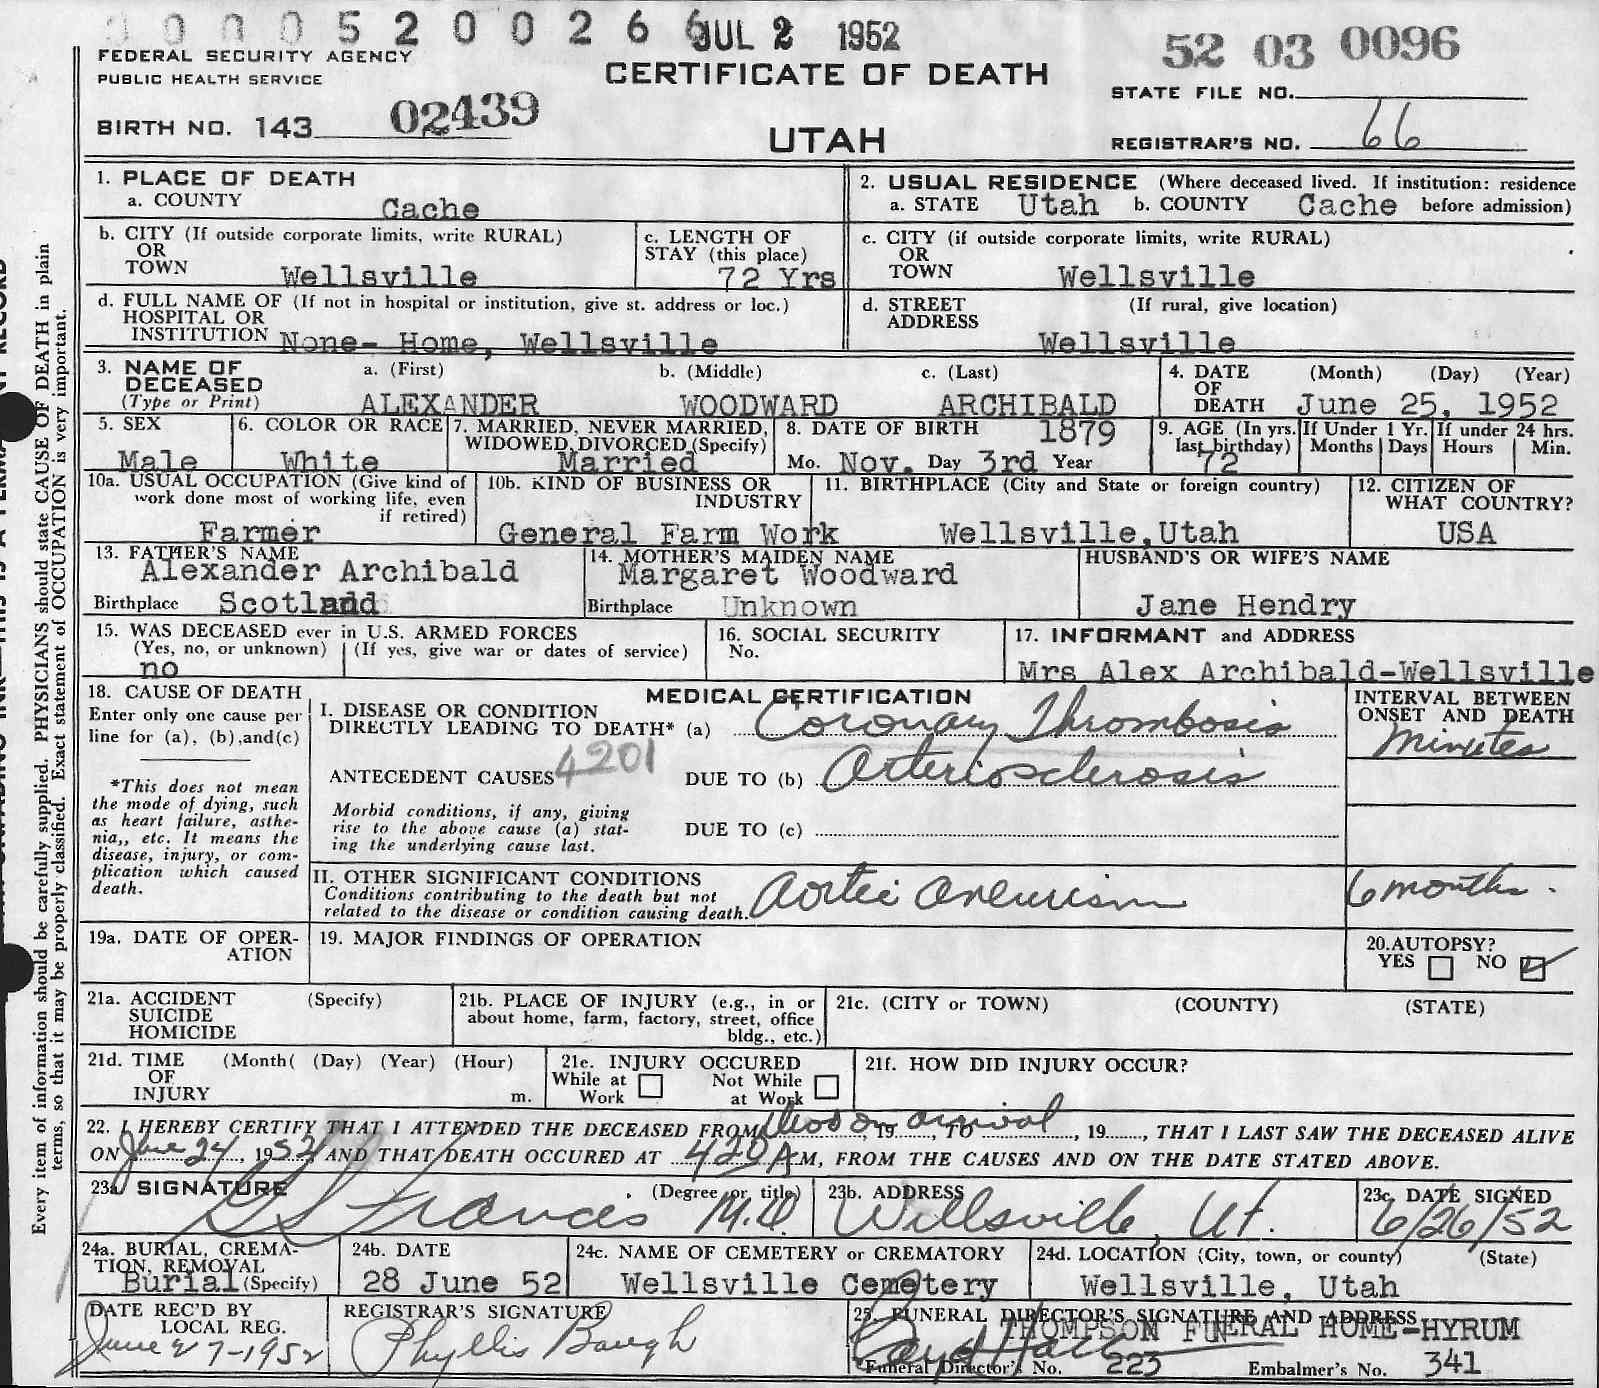 0 0 0 0 5 2 0 0 2 6 6 JUL 2 1952
52 03 0096
FEDERAL SECURITY AGENCY
PUBLIC HEALTH SERVICE
CERTIFICATE OF DEATH
STATE FILE NO.
BIRTH NO. 143 02439
UTAH
REGISTRAR'S NO. 66
1. PLACE OF DEATH
a. COUNTY Cache
2. USUAL RESIDENCE (Where deceased lived. If institution: residence
a. STATE Utah b. COUNTY Cache before admission)
b. CITY (If outside corporate limits, write RURAL)
OR
TOWN Wellsville
c. LENGTH OF
STAY (this place)
72 Yrs
c. CITY (if outside corporate limits, write RURAL)
OR
TOWN Wellsville
d. FULL NAME OF (If not in hospital or institution, give st. address or loc.)
HOSPITAL OR
INSTITUTION None- Home, Wellsville
d. STREET (If rural, give location)
ADDRESS
Wellsville
3. NAME OF a. (First) b. (Middle) c. (Last)
DECEASED
(Type or Print) ALEXANDER WOODWARD ARCHIBALD
4. DATE (Month) (Day) (Year)
OF
DEATH June 25, 1952
5. SEX
Male
6. COLOR OR RACE
White
7. MARRIED, NEVER MARRIED,
WIDOWED, DIVORCED (Specify)
Married
8. DATE OF BIRTH 1879
Mo. Nov. Day 3rd Year
9. AGE (In yrs.
last birthday)
72
If Under 1 Yr.
Months Days
If under 24 hrs.
Hours Min.
10a. USUAL OCCUPATION (Give kind of
work done most of working life, even
if retired)
Farmer
10b. KIND OF BUSINESS OR
INDUSTRY
General Farm Work
11. BIRTHPLACE (City and State or foreign country)
Wellsville, Utah
12. CITIZEN OF
WHAT COUNTRY?
USA
13. FATHER'S NAME
Alexander Archibald
Birthplace Scotland
14. MOTHER'S MAIDEN NAME
Margaret Woodward
Birthplace Unknown
HUSBAND'S OR WIFE'S NAME
Jane Hendry
15. WAS DECEASED ever in U.S. ARMED FORCES
(Yes, no, or unknown) (If yes, give war or dates of service)
no
16. SOCIAL SECURITY
No.
17. INFORMANT and ADDRESS
Mrs Alex Archibald-Wellsville
18. CAUSE OF DEATH
Enter only one cause per
line for (a), (b), and (c)
*This does not mean
the mode of dying, such
as heart failure, asthe-
nia,, etc. It means the
disease, injury, or com-
plication which caused
death.
MEDICAL CERTIFICATION
I. DISEASE OR CONDITION
DIRECTLY LEADING TO DEATH* (a) Coronary Thrombosis
ANTECEDENT CAUSES 4201 DUE TO (b) Arteriosclerosis
Morbid conditions, if any, giving
rise to the above cause (a) stat-
ing the underlying cause last.
DUE TO (c)
II. OTHER SIGNIFICANT CONDITIONS
Conditions contributing to the death but not
related to the disease or condition causing death. Aortic Aneurism
INTERVAL BETWEEN
ONSET AND DEATH
Minutes
6 months.
19a. DATE OF OPER-
ATION
19. MAJOR FINDINGS OF OPERATION
20. AUTOPSY?
YES NO
21a. ACCIDENT (Specify)
SUICIDE
HOMICIDE
21b. PLACE OF INJURY (e.g., in or
about home, farm, factory, street, office
bldg., etc.)
21c. (CITY or TOWN) (COUNTY) (STATE)
21d. TIME (Month( (Day) (Year) (Hour)
OF
INJURY m.
21e. INJURY OCCURED
While at Work Not While at Work
21f. HOW DID INJURY OCCUR?
22. I HEREBY CERTIFY THAT I ATTENDED THE DECEASED FROM Dead on arrival, 19......, TO ............, 19......., THAT I LAST SAW THE DECEASED ALIVE
ON June 24, 1952, AND THAT DEATH OCCURED AT 420 A M, FROM THE CAUSES AND ON THE DATE STATED ABOVE.
23a. SIGNATURE (Degree or title)
Francis M.D.
23b. ADDRESS
Wellsville, Ut.
23c. DATE SIGNED
6/26/52
24a. BURIAL, CREMA-
TION, REMOVAL
Burial (Specify)
24b. DATE
28 June 52
24c. NAME OF CEMETERY or CREMATORY
Wellsville Cemetery
24d. LOCATION (City, town, or county) (State)
Wellsville, Utah
DATE REC'D BY
LOCAL REG.
June 27-1952
REGISTRAR'S SIGNATURE
Phyllis Baugh
25. FUNERAL DIRECTOR'S SIGNATURE AND ADDRESS
THOMPSON FUNERAL HOME-HYRUM
*Funeral Director's No. 223 Embalmer's No. 341
Every item of information should be carefully supplied. PHYSICIANS should state CAUSE OF DEATH in plain
terms, so that it may be properly classified. Exact statement of OCCUPATION is very important.